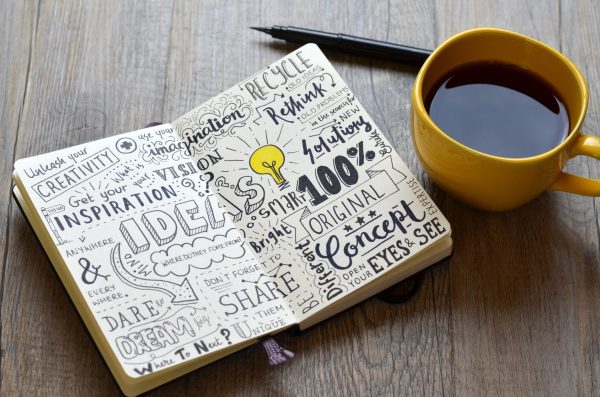 Unleash your
CREATIVITY
+ use your
imagination
Get your
INSPIRATION
VISION
ANYWHERE
&
EVERY
WHERE.
IDEAS
MIND
WHERE DO THEY COME FROM
DARE to
DREAM big
DON'T FORGET
TO
SHARE
THEM
UNIQUE
WHERE TO NEXT?
RECYCLE
OLD IDEAS
Rethink
OLD PROBLEMS
in the search for
NEW
Solutions
SMART
Bright
100%
ORIGINAL
Concept
BE
Different
OPEN
YOUR
EYES
& SEE
EXPERTISE